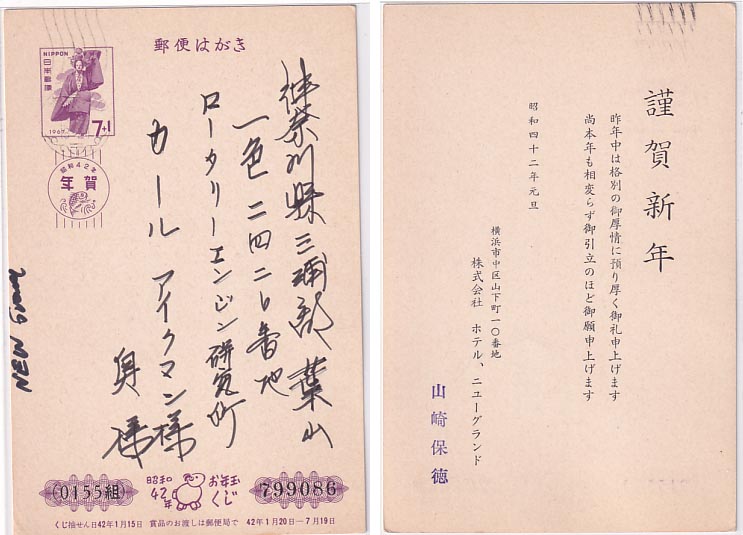 郵便はがき
NIPPON
日本郵便
1967
7+1
昭和42年
年賀
神奈川縣三浦郡葉山
一色二四二六番地
ロータリーエンジン研究所
カール アイクマン様
NEW Grand
0155組
昭和
42年
お年玉
くじ
799086
くじ抽せん日42年1月15日 賞品のお渡しは郵便局で 42年1月20日―7月19日
謹賀新年
昨年中は格別の御厚情に預り厚く御礼申上げます
尚本年も相変らず御引立のほど御願申上げます
昭和四十二年元旦
横浜市中区山下町一〇番地
株式会社 ホテル、ニューグランド
山崎保徳